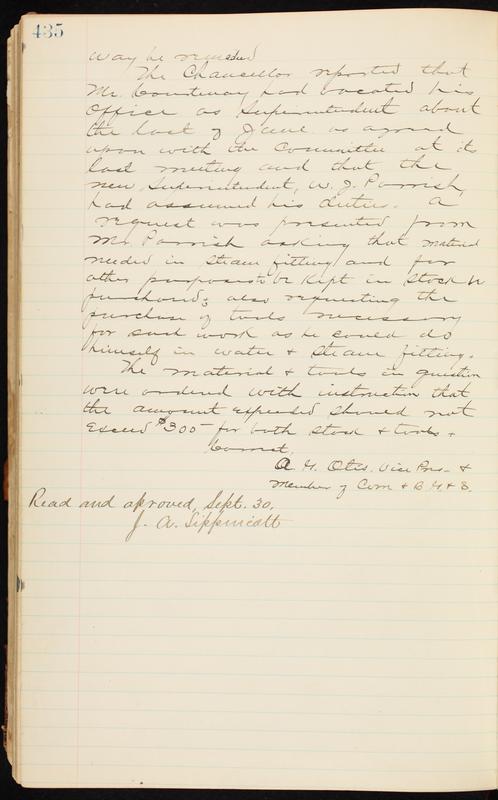 435
way be remedied
The Chancellor reported that
Mr. Courtenay had vacated his
Office as Superintendent about
the last of June as agreed
upon with the Committee at its
last meeting and that the
new Superintendent, W. J. Parrish,
had assumed his duties. A
request was presented from
Mr. Parrish asking that material
needed in steam fitting and for
other purposes to be kept in stock be
purchased; also requesting the
purchase of tools necessary
for such work as he could do
himself in water & steam fitting.
The material & tools in question
were ordered with instruction that
the amount expended should not
exceed $300 for both stock & tools.
Correct.
A. G. Otis. Vice Pres. &
member of Com & B. G. &
Read and aproved, Sept. 30.
J. A. Lippincott